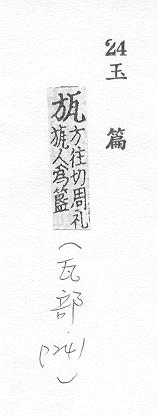 24
玉篇
瓬
方往切周礼
旊人為簋
(瓦部